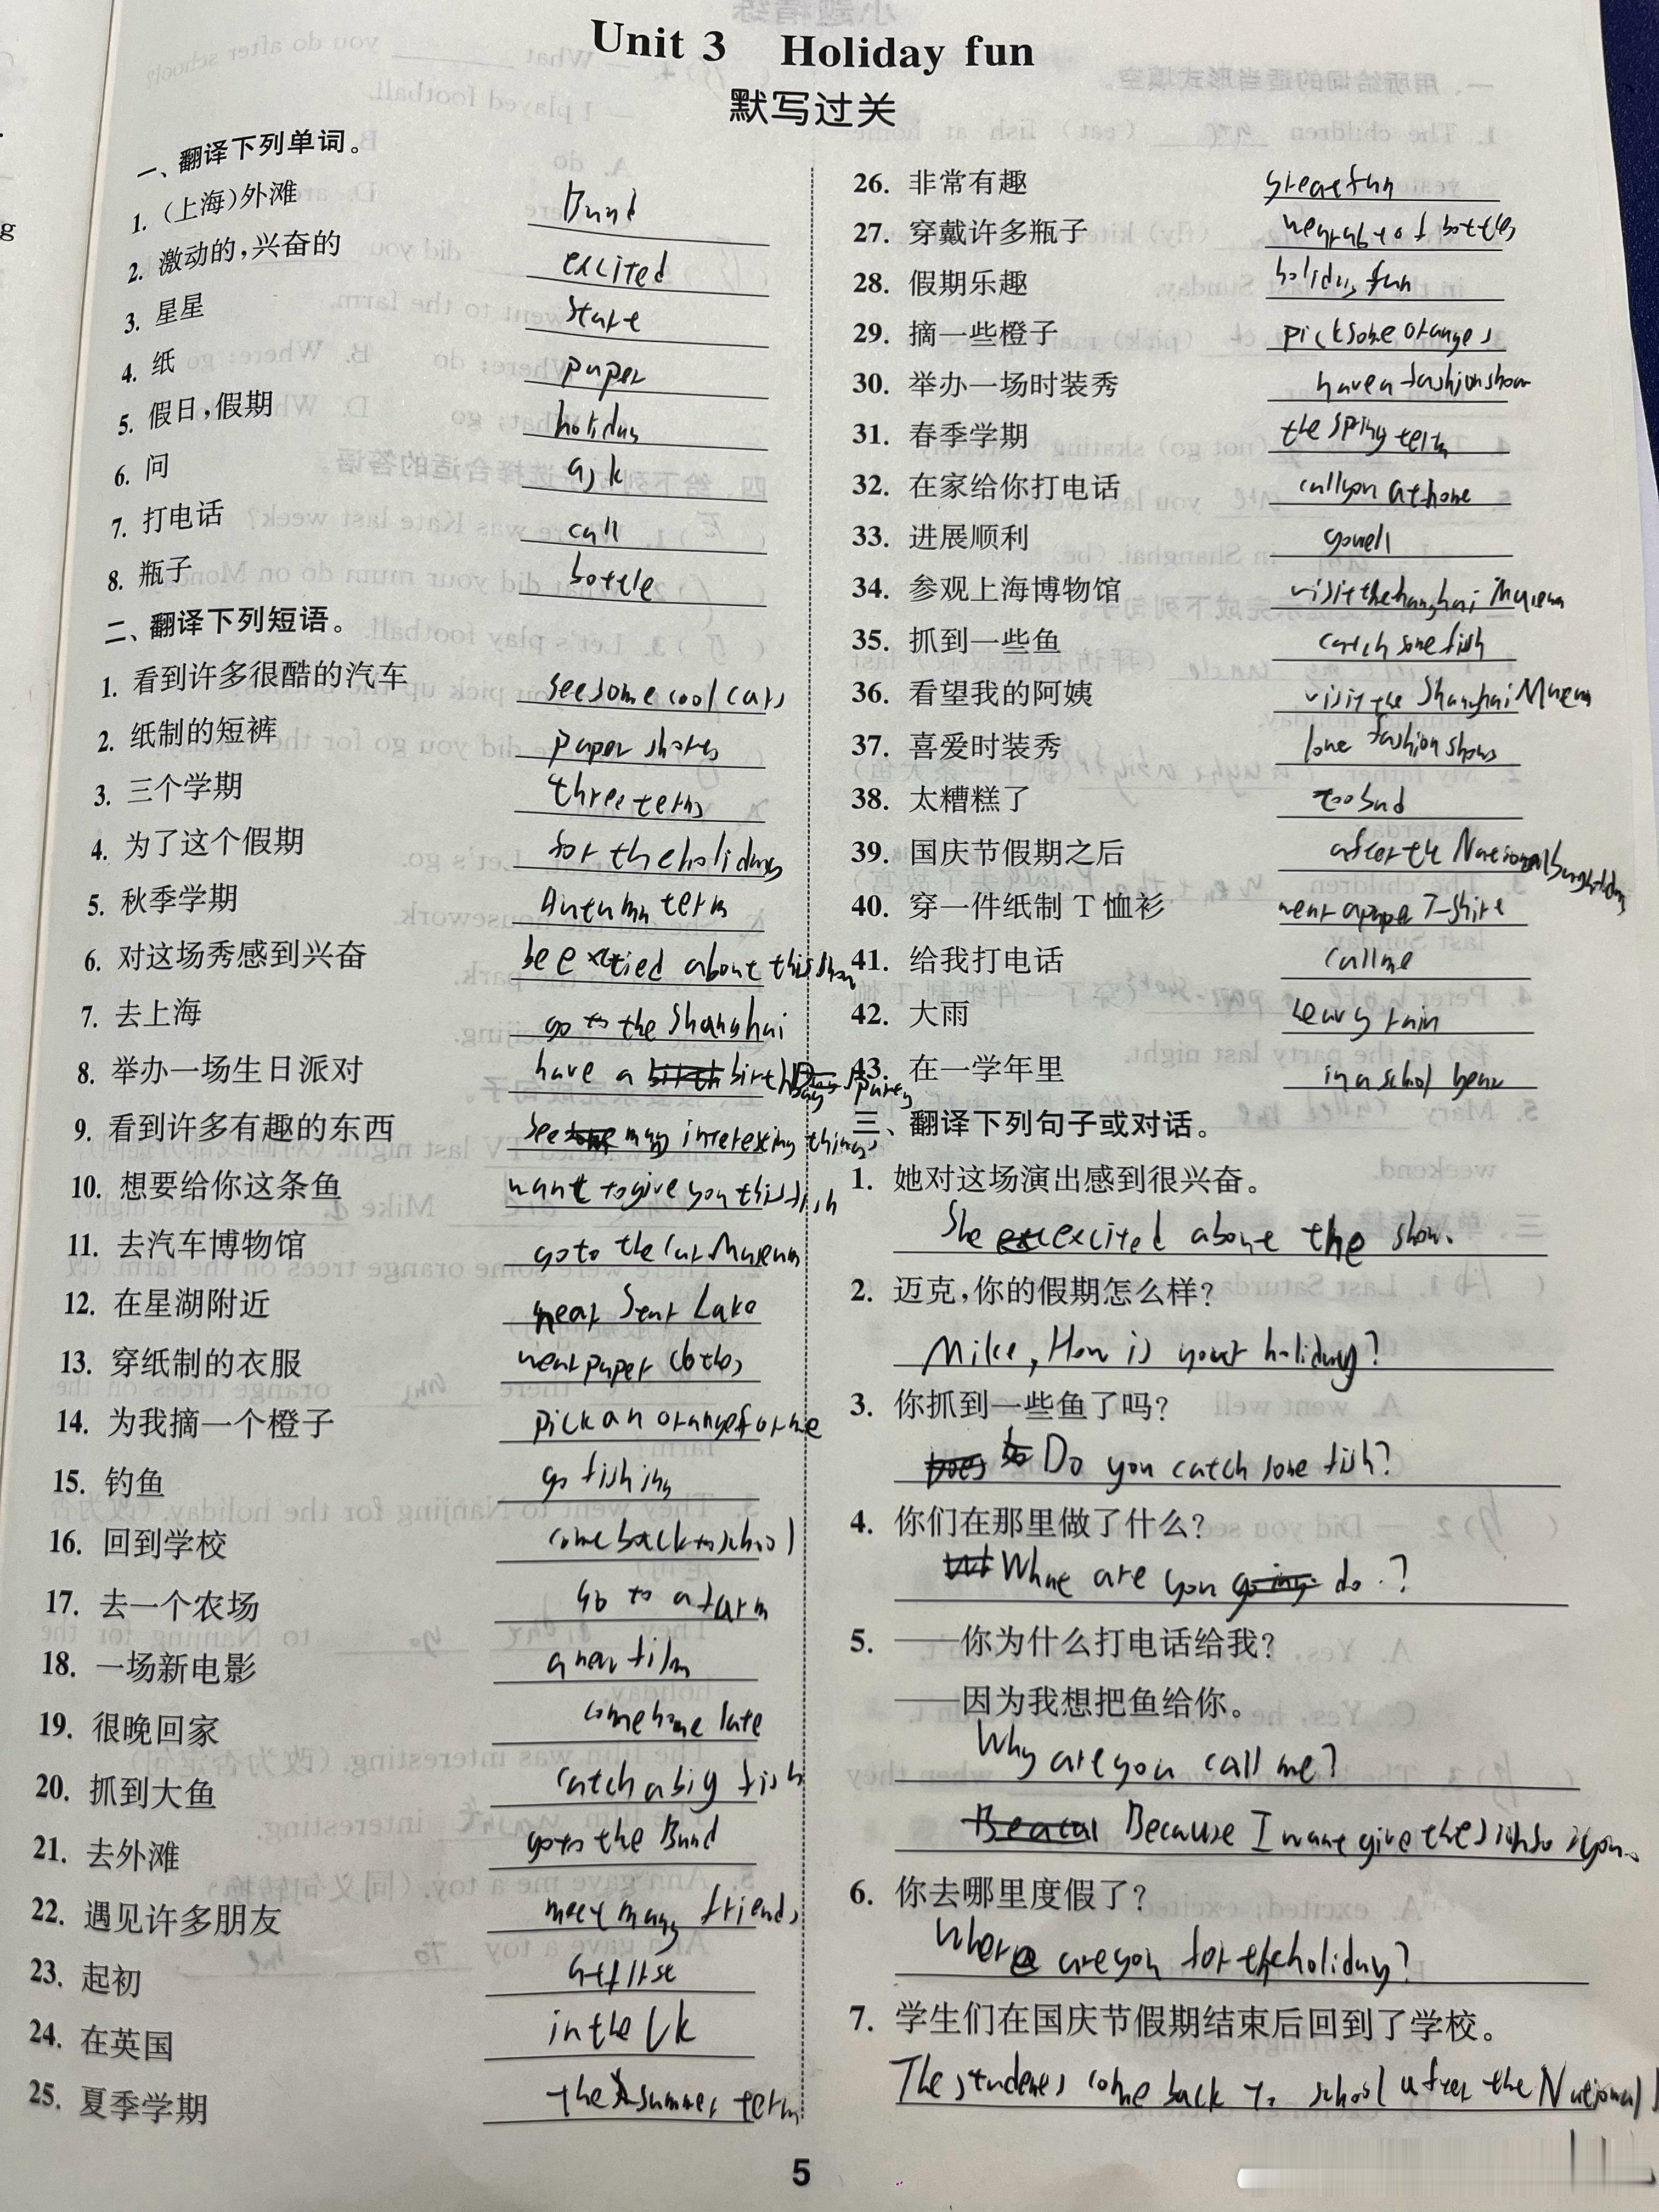 Unit 3 Holiday fun
默写过关
一、翻译下列单词。
1. (上海)外滩 Bund
2. 激动的,兴奋的 excited
3. 星星
4. 纸 paper
5. 假日,假期 holiday
6. 问 ask
7. 打电话 call
8. 瓶子 bottle
二、翻译下列短语。
1. 看到许多很酷的汽车 see some cool cars
2. 纸制的短裤 paper
3. 三个学期 three terms
4. 为了这个假期 for the holidays
5. 秋季学期 Autumn term
6. 对这场秀感到兴奋 be about this show
7. 去上海 go to the Shanghai
8. 举办一场生日派对 have a birthDay party
9. 看到许多有趣的东西 see many interesting things
10. 想要给你这条鱼 want to give you this fish
11. 去汽车博物馆 go to the Car
12. 在星湖附近 near Lake
13. 穿纸制的衣服 wear paper
14. 为我摘一个橙子 pick an orange for me
15. 钓鱼 go fishing
16. 回到学校 come back to school
17. 去一个农场 go to a farm
18. 一场新电影 a new film
19. 很晚回家 come home late
20. 抓到大鱼 catch a big fish
21. 去外滩 go to the Bund
22. 遇见许多朋友 meet many friends
23. 起初 at first
24. 在英国 in the Uk
25. 夏季学期 the summer term
26. 非常有趣 great fun
27. 穿戴许多瓶子 of bottles
28. 假期乐趣 holiday fun
29. 摘一些橙子 pick some oranges
30. 举办一场时装秀 have a fashion show
31. 春季学期 the term
32. 在家给你打电话 call you at home
33. 进展顺利 go well
34. 参观上海博物馆 visit the
35. 抓到一些鱼 catch some fish
36. 看望我的阿姨 visit the Shanghai
37. 喜爱时装秀 love fashion shows
38. 太糟糕了 too bad
39. 国庆节假期之后 after the National
40. 穿一件纸制 T 恤衫 wear a T-shirt
41. 给我打电话 call me
42. 大雨 heavy rain
43. 在一学年里 in a
三、翻译下列句子或对话。
1. 她对这场演出感到很兴奋。
She excited about the show.
2. 迈克,你的假期怎么样?
Mike, How is your holiday?
3. 你抓到一些鱼了吗?
Do you catch some fish?
4. 你们在那里做了什么?
What are you do.?
5. ——你为什么打电话给我?
——因为我想把鱼给你。
Why are you call me?
Because I want give the
6. 你去哪里度假了?
Where are you for the holiday?
7. 学生们在国庆节假期结束后回到了学校。
The students come back to school after the National
5